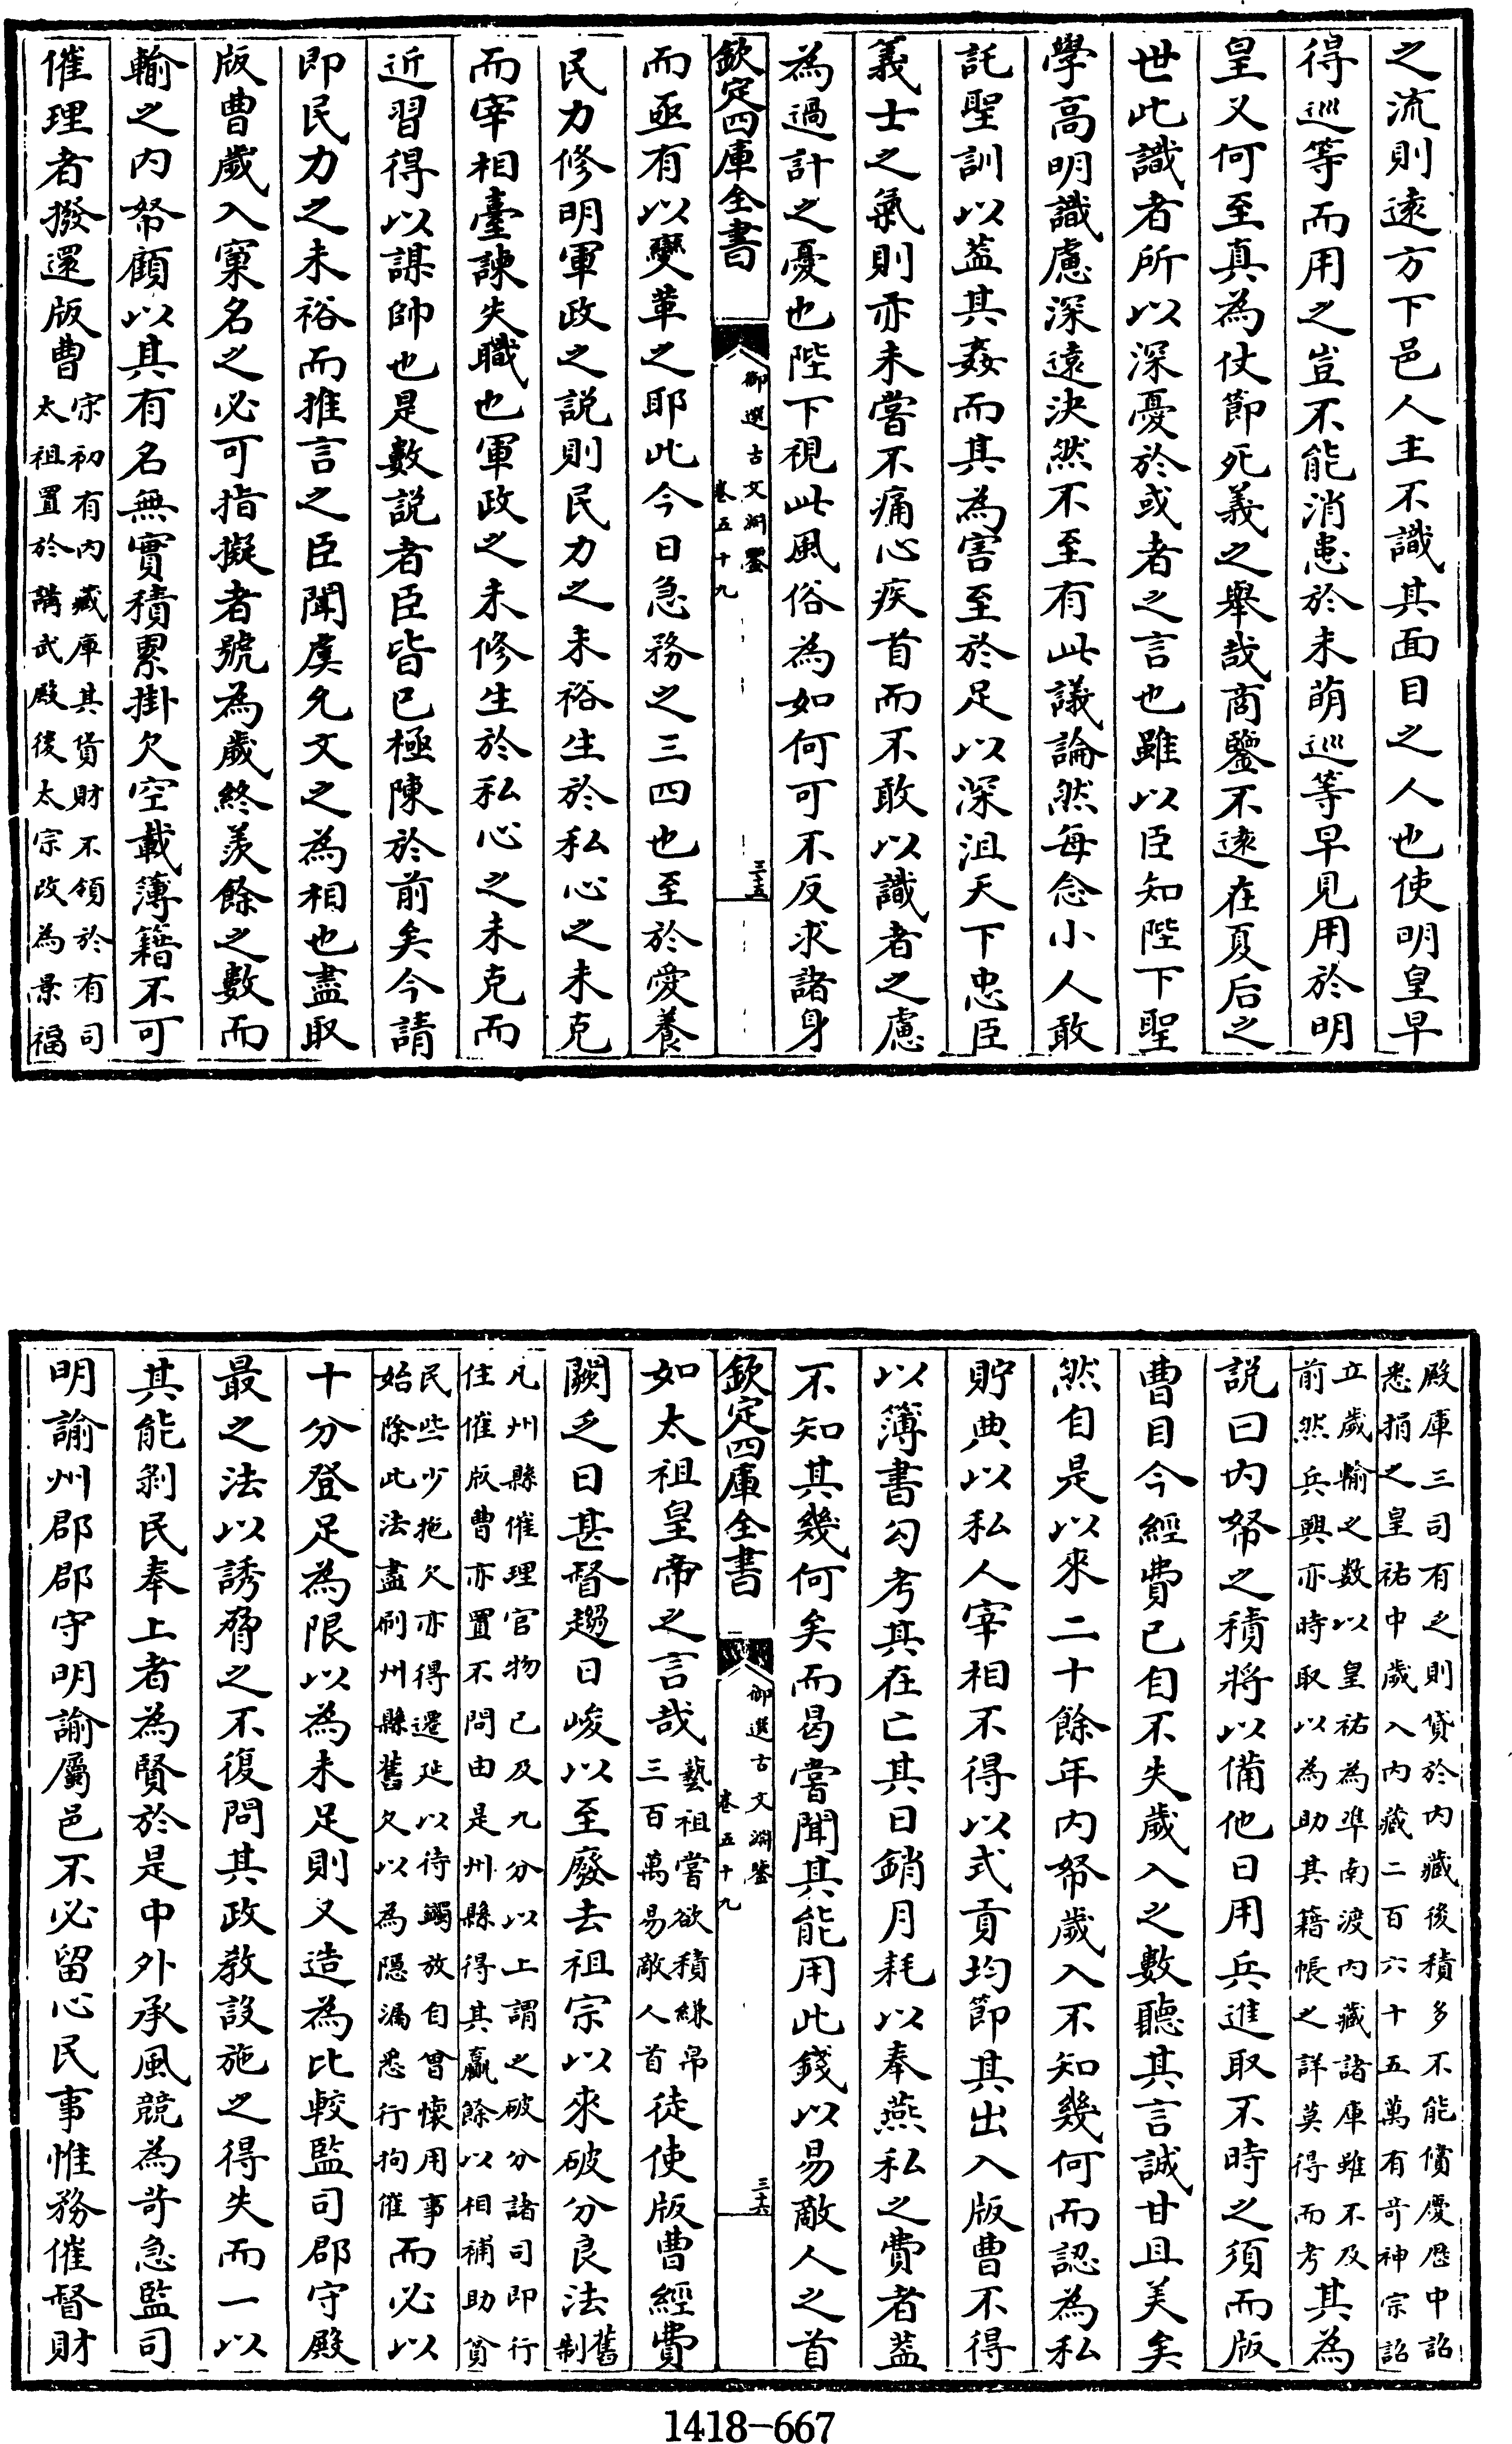 之流則逺方下邑人主不識其面目之人也使明皇早
得巡等而用之豈不能消患於未萌巡等早見用於明
皇又何至真為仗節死義之舉哉商鑒不逺在夏后之
世此識者所以深憂於或者之言也雖以臣知陛下聖
學高明識慮深遠決然不至有此議論然每念小人敢
託聖訓以蓋其姦而其為害至於足以深沮天下忠臣
義士之氣則亦未嘗不痛心疾首而不敢以識者之慮
為過計之憂也陛下視此風俗為如何可不反求諸身
欽定四庫全書
御選古文淵鑒
卷五十九
三十五
而亟有以變革之耶此今日急務之三四也至於愛養
民力修明軍政之説則民力之未裕生於私心之未克
而宰相臺諫失職也軍政之未修生於私心之未克而
近習得以謀帥也是數説者臣皆已極陳於前矣今請
即民力之未裕而推言之臣聞虞允文之為相也盡取
版曹歲入窠名之必可指擬者號為歲終羨餘之數而
輸之內帑顧以其有名無實積累掛欠空載簿籍不可
催理者撥還版曹
宋初有內藏庫其貨財不領於有司
太祖置於講武殿後太宗改為景福
殿庫三司有乏則貸於內藏後積多不能償慶歴中詔
悉捐之皇祐中歲入內藏二百六十五萬有竒神宗詔
立歲輸之数以皇祐為準南渡內藏諸庫雖不及
前然兵興亦時取以為助其籍帳之詳莫得而考
其為
説曰內帑之積將以備他日用兵進取不時之須而版
曹目今經費已自不失歲入之數聽其言誠甘且美矣
然自是以來二十餘年內帑歲入不知幾何而認為私
貯典以私人宰相不得以式貢均節其出入版曹不得
以簿書勾考其在亡其日銷月耗以奉燕私之費者蓋
不知其幾何矣而曷嘗聞其能用此錢以易敵人之首
欽定四庫全書
御選古文淵鑒
卷五十九
三十六
如太祖皇帝之言哉
藝祖嘗欲積縑帛
三百萬易敵人首
徒使版曹經費
闕乏日甚督趨日峻以至廢去祖宗以來破分良法
舊
制
凡州縣催理官物已及九分以上謂之破分諸司即行
住催版曹亦置不問由是州縣得其贏餘以相補助貧
民些少拖欠亦得遷延以待蠲放自曾懷用事
始除此法盡刷州縣舊欠以為隱漏悉行拘催
而必以
十分登足為限以為未足則又造為比較監司郡守殿
最之法以誘脅之不復問其政教設施之得失而一以
其能剝民奉上者為賢於是中外承風競為苛急監司
明諭州郡郡守明諭屬邑不必留心民事惟務催督財
1418-667